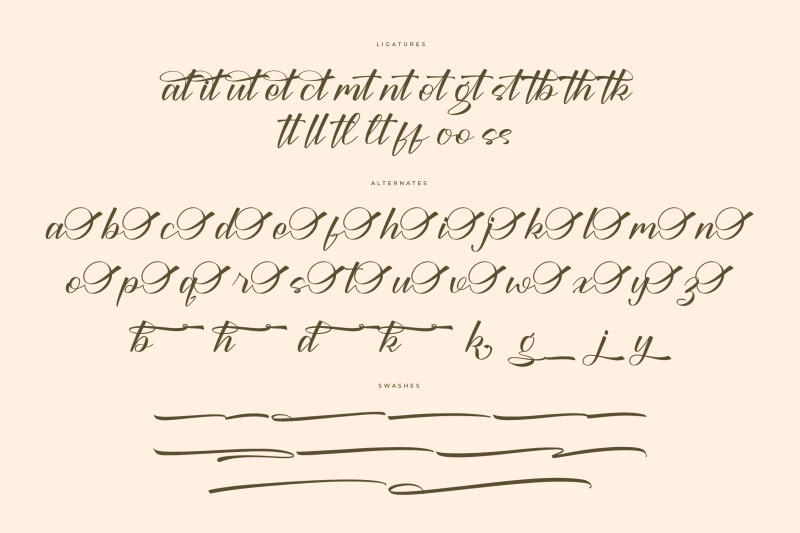 LIGATURES
at it ut et ct mt nt ot gt st tb th tk
tt ll tl lt ff oo ss
ALTERNATES
a b c d e f h i j k l m n
o p q r s t u v w x y z
b h d k k g j y
SWASHES